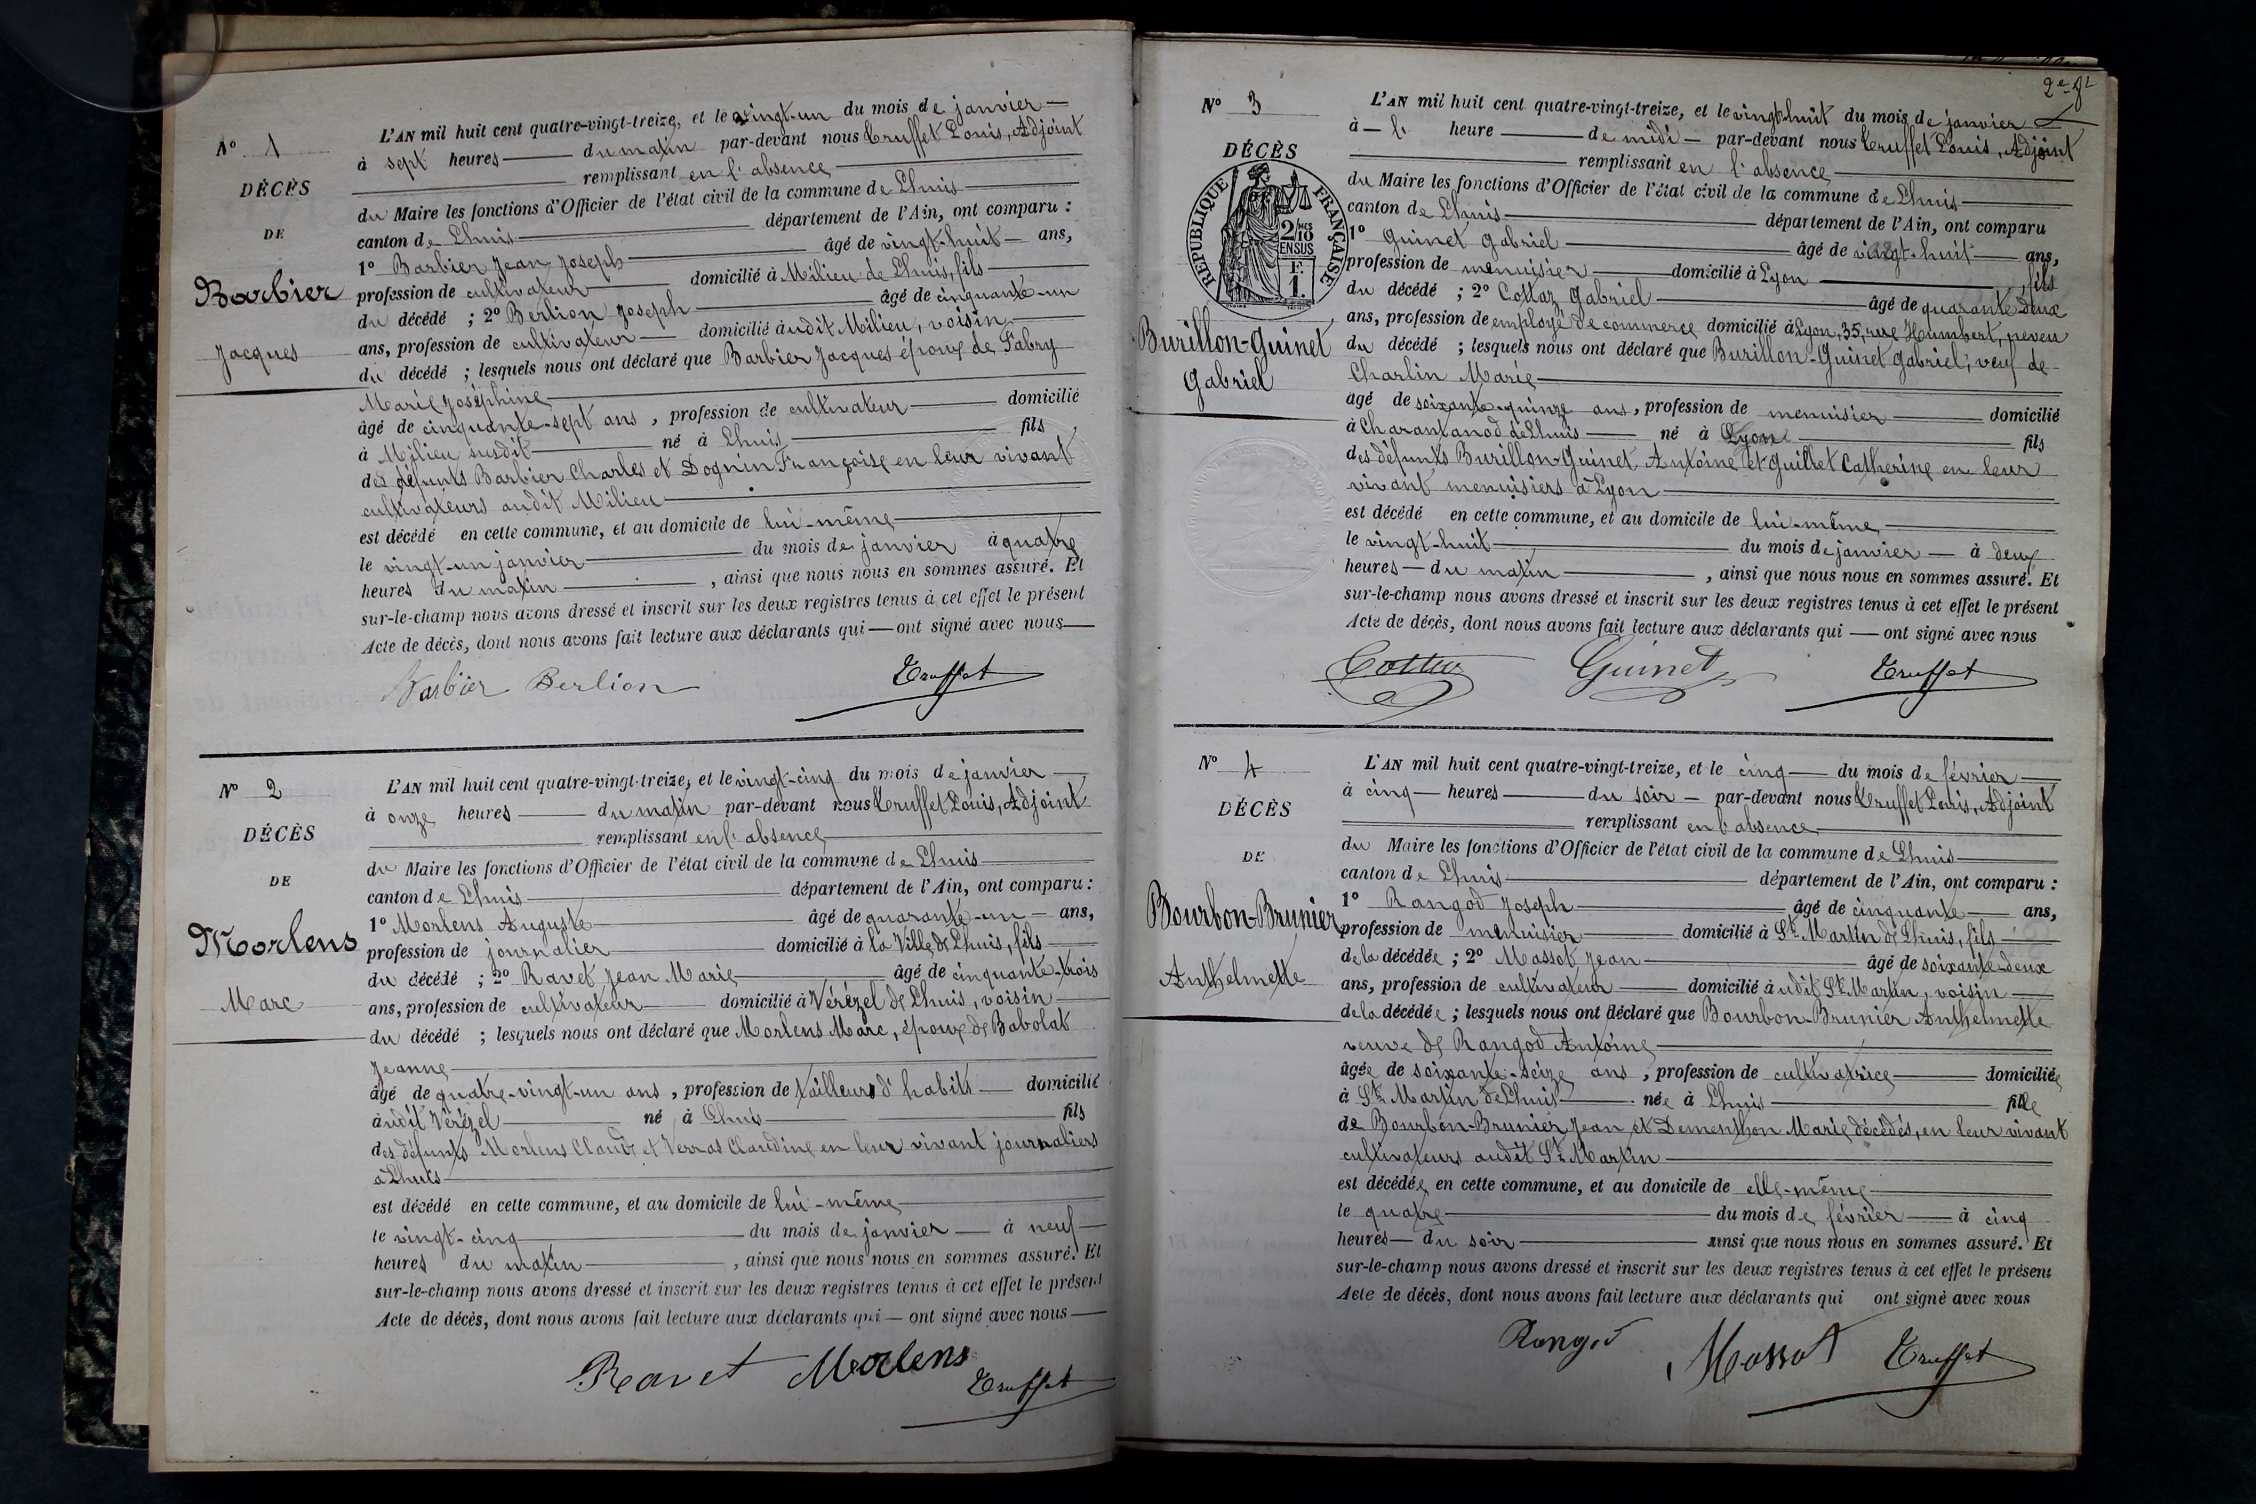 N° 1
DÉCÈS
DE
Barbier
Jacques
L'AN mil huit cent quatre-vingt-treize, et le vingt-un du mois de janvier
à sept heures du matin par-devant nous Truffet Louis, Adjoint
remplissant en l'absence
du Maire les fonctions d'Officier de l'état civil de la commune de Lhuis
canton de Lhuis département de l'Ain, ont comparu :
1° Barbier Jean Joseph âgé de vingt-huit ans,
profession de cultivateur domicilié à Milieu de Lhuis, fils
du décédé ; 2° Berlion Joseph âgé de cinquante-un
ans, profession de cultivateur domicilié audit Milieu, voisin
du décédé ; lesquels nous ont déclaré que Barbier Jacques époux de Fabry
Marie Joséphine
âgé de cinquante-sept ans, profession de cultivateur domicilié
à Milieu susdit né à Lhuis fils
des défunts Barbier Charles et Dognin Françoise en leur vivant
cultivateurs audit Milieu
est décédé en cette commune, et au domicile de lui-même
le vingt-un janvier du mois de janvier à quatre
heures du matin, ainsi que nous nous en sommes assuré. Et
sur-le-champ nous avons dressé et inscrit sur les deux registres tenus à cet effet le présent
Acte de décès, dont nous avons fait lecture aux déclarants qui ont signé avec nous
Barbier Berlion Truffet
N° 2
DÉCÈS
DE
Morlens
Marc
L'AN mil huit cent quatre-vingt-treize, et le vingt-cinq du mois de janvier
à onze heures du matin par-devant nous Truffet Louis, Adjoint
remplissant en l'absence
du Maire les fonctions d'Officier de l'état civil de la commune de Lhuis
canton de Lhuis département de l'Ain, ont comparu :
1° Morlens Auguste âgé de quarante-un ans,
profession de journalier domicilié à la Ville de Lhuis, fils
du décédé ; 2° Ravet Jean Marie âgé de cinquante-trois
ans, profession de cultivateur domicilié à Vérézel de Lhuis, voisin
du décédé ; lesquels nous ont déclaré que Morlens Marc, époux de Babolat
Jeanne
âgé de quatre-vingt-un ans, profession de tailleur d'habits domicilié
audit Vérézel né à Lhuis fils
des défunts Morlens Claude et Verras Claudine en leur vivant journaliers
à Lhuis
est décédé en cette commune, et au domicile de lui-même
le vingt-cinq du mois de janvier à neuf
heures du matin, ainsi que nous nous en sommes assuré. Et
sur-le-champ nous avons dressé et inscrit sur les deux registres tenus à cet effet le présent
Acte de décès, dont nous avons fait lecture aux déclarants qui ont signé avec nous
Ravet Morlens Truffet
2e
N° 3
DÉCÈS
RÉPUBLIQUE FRANÇAISE
2/10 EN SUS
1 F.
Burillon-Guinet
Gabriel
L'AN mil huit cent quatre-vingt-treize, et le vingt-huit du mois de janvier
à heure de midi par-devant nous Truffet Louis, Adjoint
remplissant en l'absence
du Maire les fonctions d'Officier de l'état civil de la commune de Lhuis
canton de Lhuis département de l'Ain, ont comparu
1° Guinet Gabriel âgé de vingt-huit ans,
profession de menuisier domicilié à Lyon, fils
du décédé ; 2° Cottaz Gabriel âgé de quarante-deux
ans, profession de employé de commerce domicilié à Lyon, 35, rue Humbert, neveu
du décédé ; lesquels nous ont déclaré que Burillon-Guinet Gabriel, veuf de
Charlin Marie
âgé de soixante-quinze ans, profession de menuisier domicilié
à Charantanod de Lhuis né à Lyon fils
des défunts Burillon-Guinet Antoine et Guillet Catherine en leur
vivant menuisiers à Lyon
est décédé en cette commune, et au domicile de lui-même
le vingt-huit du mois de janvier à deux
heures du matin, ainsi que nous nous en sommes assuré. Et
sur-le-champ nous avons dressé et inscrit sur les deux registres tenus à cet effet le présent
Acte de décès, dont nous avons fait lecture aux déclarants qui ont signé avec nous
Cottaz Guinet Truffet
N° 4
DÉCÈS
DE
Bourbon-Brunier
Anthelmette
L'AN mil huit cent quatre-vingt-treize, et le cinq du mois de février
à cinq heures du soir par-devant nous Truffet Louis, Adjoint
remplissant en l'absence
du Maire les fonctions d'Officier de l'état civil de la commune de Lhuis
canton de Lhuis département de l'Ain, ont comparu :
1° Rangod Joseph âgé de cinquante ans,
profession de menuisier domicilié à St Martin de Lhuis, fils
de la décédée ; 2° Massot Jean âgé de soixante-deux
ans, profession de cultivateur domicilié audit St Martin, voisin
de la décédée ; lesquels nous ont déclaré que Bourbon-Brunier Anthelmette
veuve de Rangod Antoine
âgée de soixante-seize ans, profession de cultivatrice domiciliée
à St Martin de Lhuis née à Lhuis fille
de Bourbon-Brunier Jean et Dementhon Marie décédés, en leur vivant
cultivateurs audit St Martin
est décédée en cette commune, et au domicile de elle-même
le quatre du mois de février à cinq
heures du soir ainsi que nous nous en sommes assuré. Et
sur-le-champ nous avons dressé et inscrit sur les deux registres tenus à cet effet le présent
Acte de décès, dont nous avons fait lecture aux déclarants qui ont signé avec nous
Rangod Massot Truffet